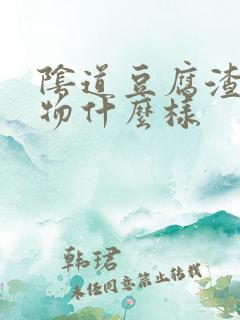 陰道豆腐渣
物什麼樣
韩珺
未经同意禁止转载